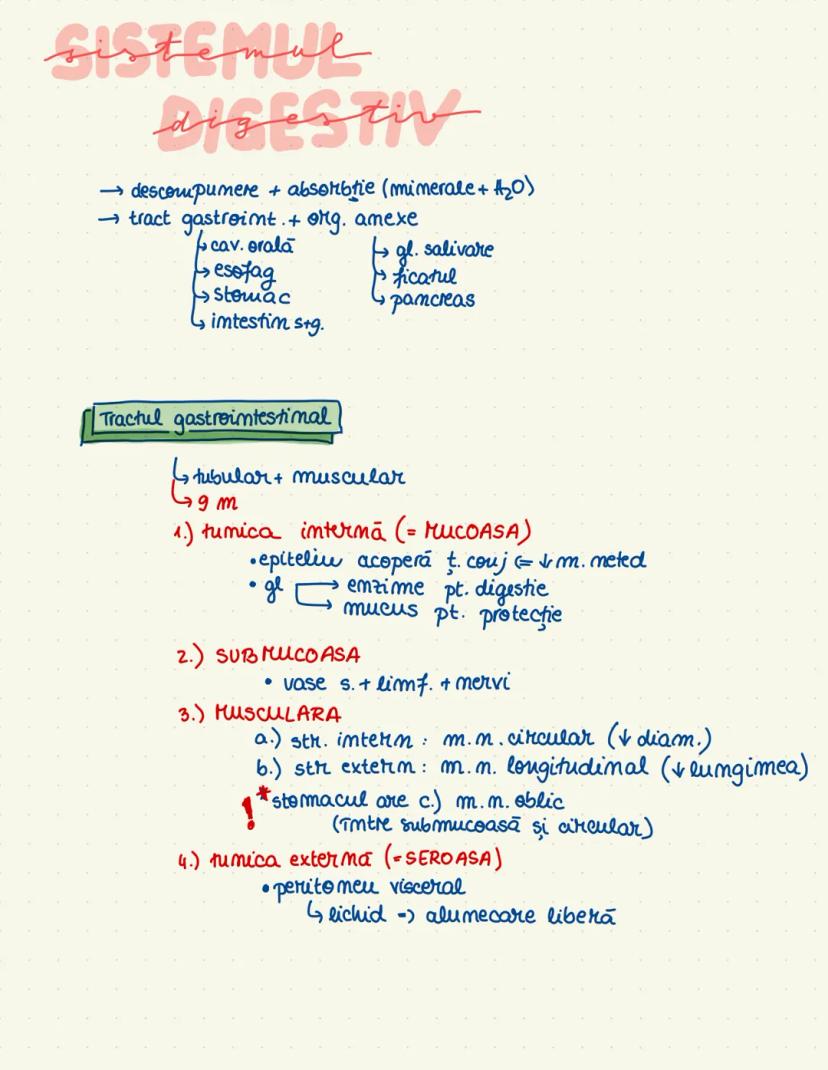 SISTEMUL
sistemul
DIGESTIV
digestiv
→ descompunere + absorbție (minerale + H₂O)
→ tract gastroint. + org. anexe
↳ cav. orală
↳ esofag
↳ stomac
↳ intestin s+g.
↳ gl. salivare
↳ ficatul
↳ pancreas
Tractul gastrointestinal
↳ tubular + muscular
↳ 9 m
1.) tunica internă (= MUCOASA)
• epiteliu acoperă ț. conj ⇐ ↓ m. neted
• gl → enzime pt. digestie
→ mucus pt. protecție
2.) SUBMUCOASA
• vase s. + limf. + nervi
3.) MUSCULARA
a.) str. intern : m.n. circular (↓ diam.)
b.) str extern : m.n. longitudinal (↓ lungimea)
! * stomacul are c.) m.n. oblic
(între submucoasă și circular)
4.) tunica externă (= SEROASA)
• peritoneu visceral
↳ lichid => alunecare liberă